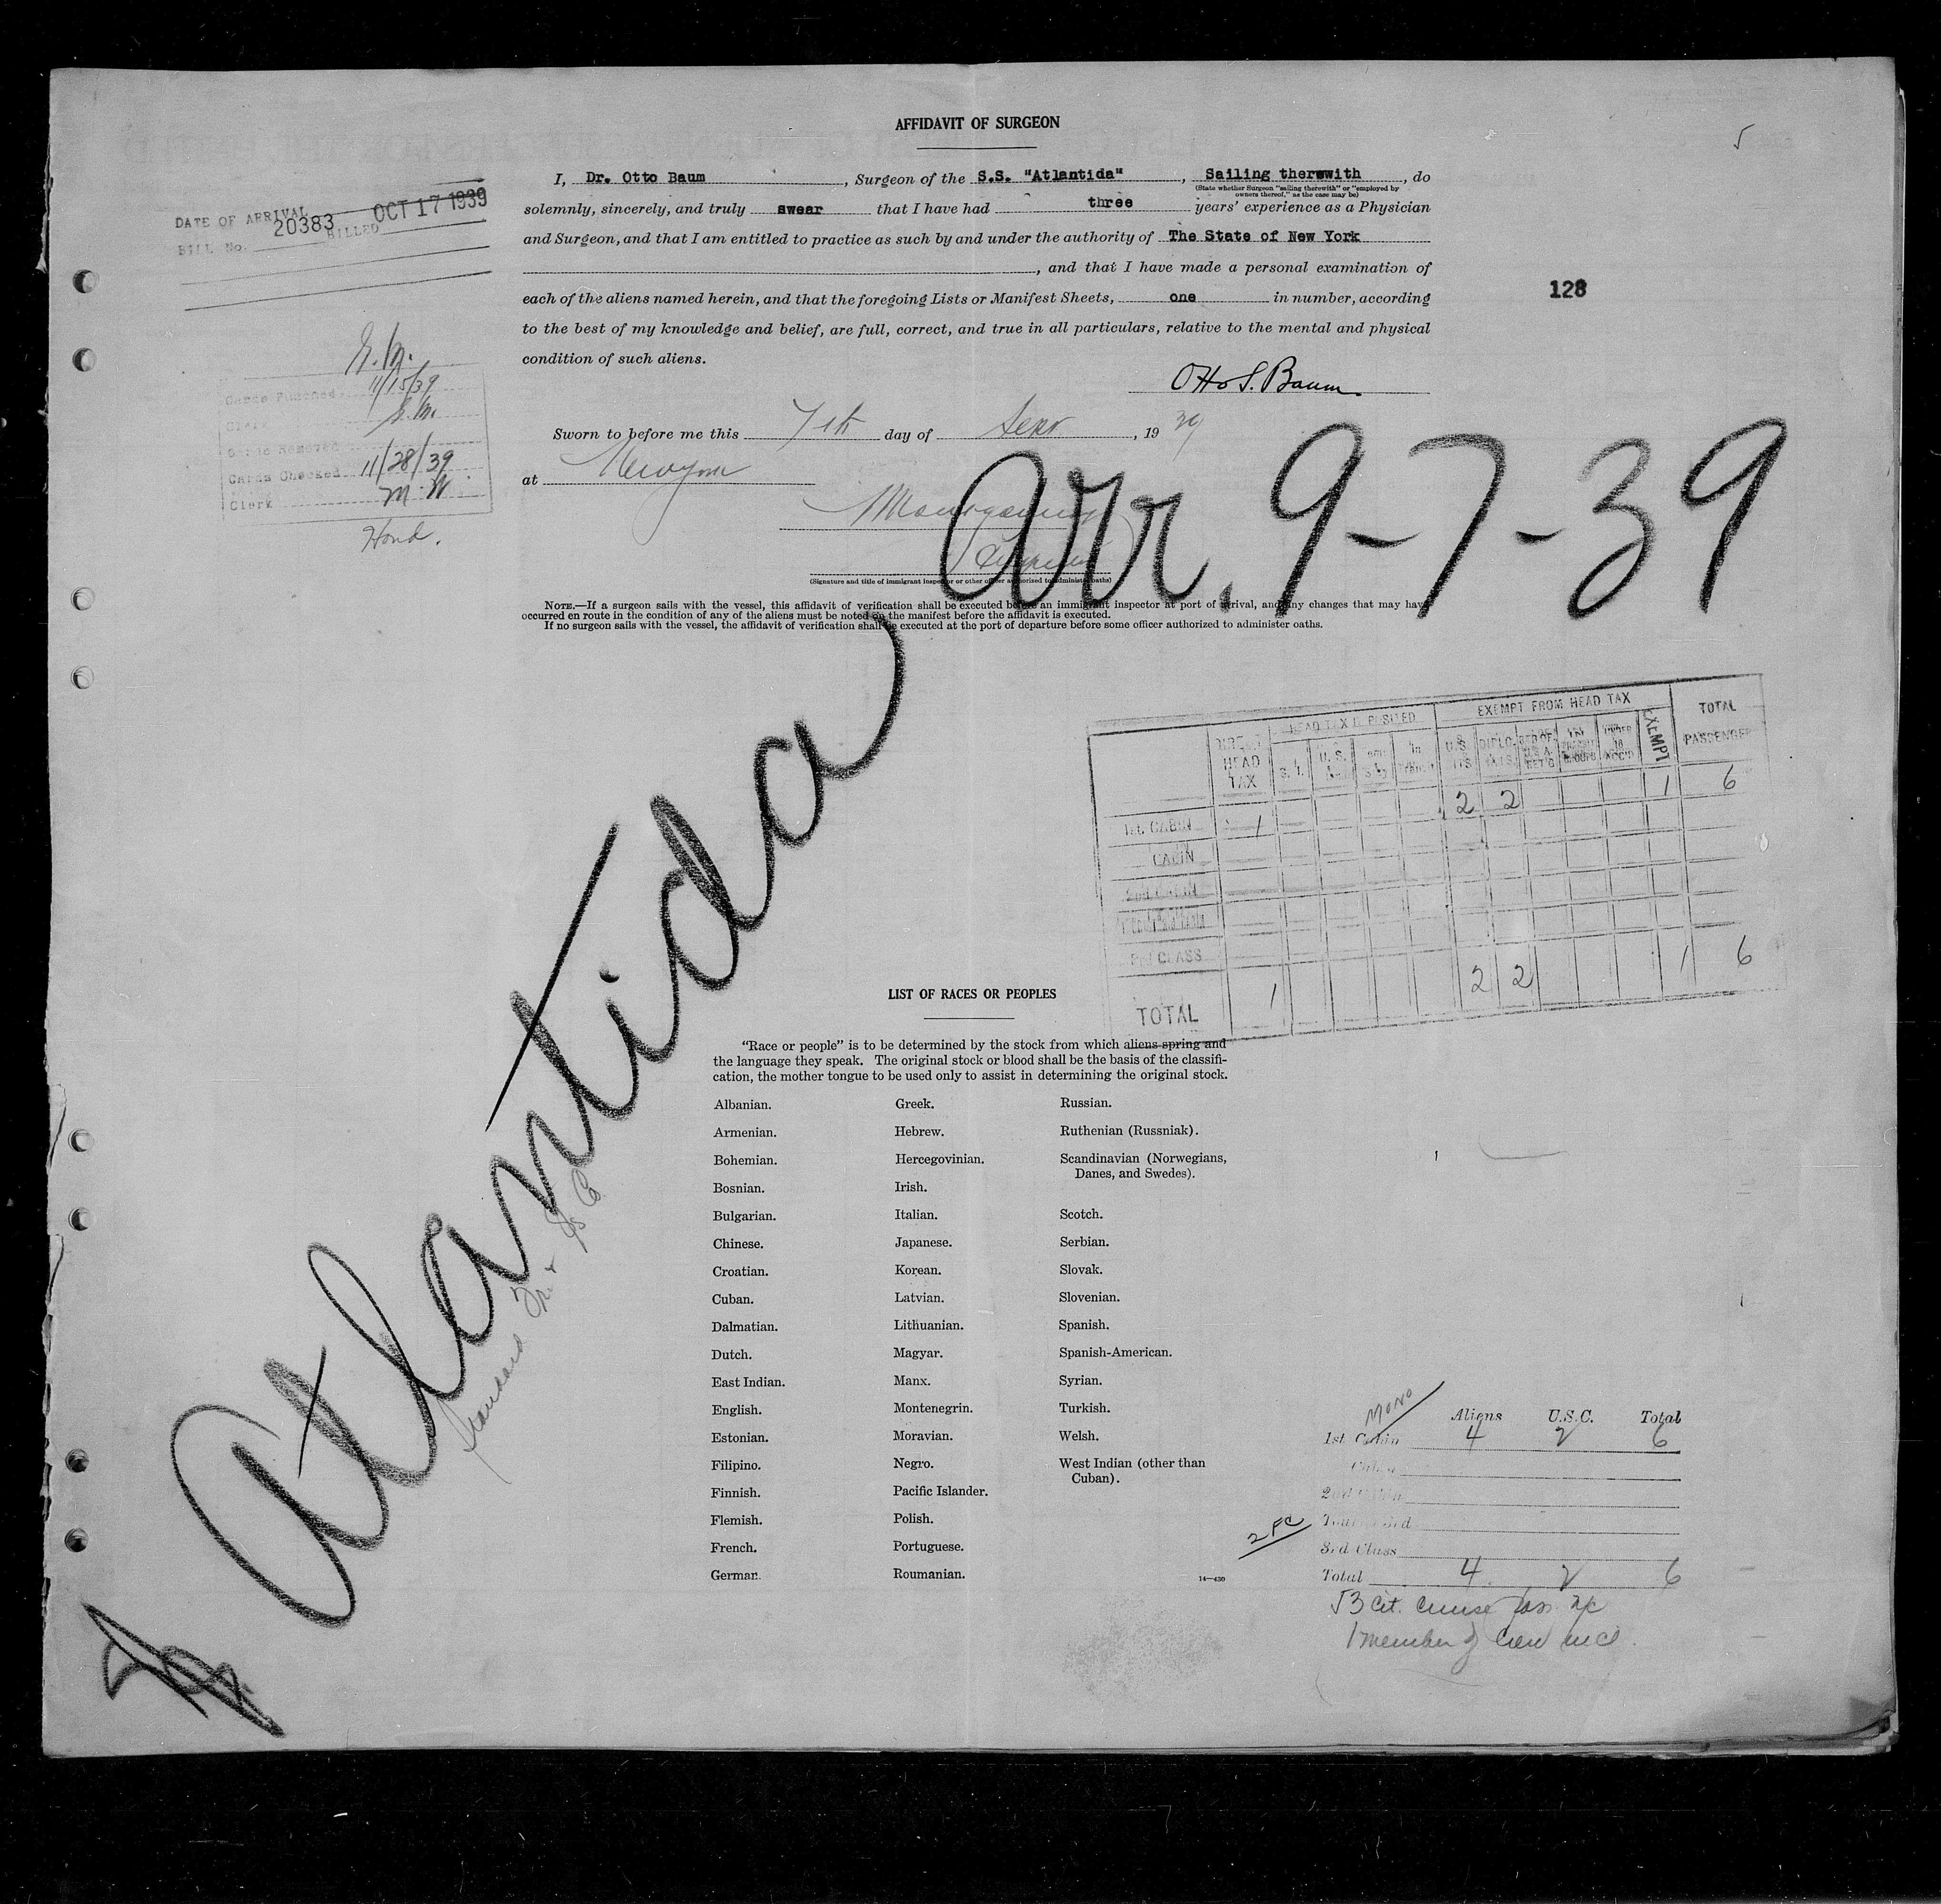 AFFIDAVIT OF SURGEON
5
I, Dr. Otto Baum, Surgeon of the S.S. "Atlantida", Sailing therewith, do
(State whether Surgeon "sailing therewith" or "employed by
owners thereof," as the case may be)
solemnly, sincerely, and truly swear that I have had three years' experience as a Physician
and Surgeon, and that I am entitled to practice as such by and under the authority of The State of New York
, and that I have made a personal examination of
each of the aliens named herein, and that the foregoing Lists or Manifest Sheets, one in number, according
to the best of my knowledge and belief, are full, correct, and true in all particulars, relative to the mental and physical
condition of such aliens.
Otto S. Baum
128
DATE OF ARRIVAL
BILL No. 20383 BILLED OCT 17 1939
Cards Punched 11/15/39
Clerk
Cards Removed
Cards Checked 11/28/39
Clerk M.W.
Hond.
Sworn to before me this 7th day of Sept, 1939
at New York
(Signature and title of immigrant inspector or other officer authorised to administer oaths)
Arr. 9-7-39
NOTE.—If a surgeon sails with the vessel, this affidavit of verification shall be executed before an immigrant inspector at port of arrival, and any changes that may have
occurred en route in the condition of any of the aliens must be noted on the manifest before the affidavit is executed.
If no surgeon sails with the vessel, the affidavit of verification shall be executed at the port of departure before some officer authorized to administer oaths.
Atlantida
EXEMPT FROM HEAD TAX
TOTAL
PASSENGER
DIRECT
HEAD
TAX
EXEMPT
1st. CABIN 1 2 2 1 6
CABIN
2nd CABIN
3rd CLASS
TOTAL 1 2 2 1 6
LIST OF RACES OR PEOPLES
"Race or people" is to be determined by the stock from which aliens spring and
the language they speak. The original stock or blood shall be the basis of the classifi-
cation, the mother tongue to be used only to assist in determining the original stock.
Albanian.
Armenian.
Bohemian.
Bosnian.
Bulgarian.
Chinese.
Croatian.
Cuban.
Dalmatian.
Dutch.
East Indian.
English.
Estonian.
Filipino.
Finnish.
Flemish.
French.
German.
Greek.
Hebrew.
Hercegovinian.
Irish.
Italian.
Japanese.
Korean.
Latvian.
Lithuanian.
Magyar.
Manx.
Montenegrin.
Moravian.
Negro.
Pacific Islander.
Polish.
Portuguese.
Roumanian.
Russian.
Ruthenian (Russniak).
Scandinavian (Norwegians,
Danes, and Swedes).
Scotch.
Serbian.
Slovak.
Slovenian.
Spanish.
Spanish-American.
Syrian.
Turkish.
Welsh.
West Indian (other than
Cuban).
14—430
MONO
Aliens U.S.C. Total
1st Cabin 4 2 6
2nd Cabin
3rd Class
Total 4 2 6
53 cit. cruise pass
1 member of crew incl.